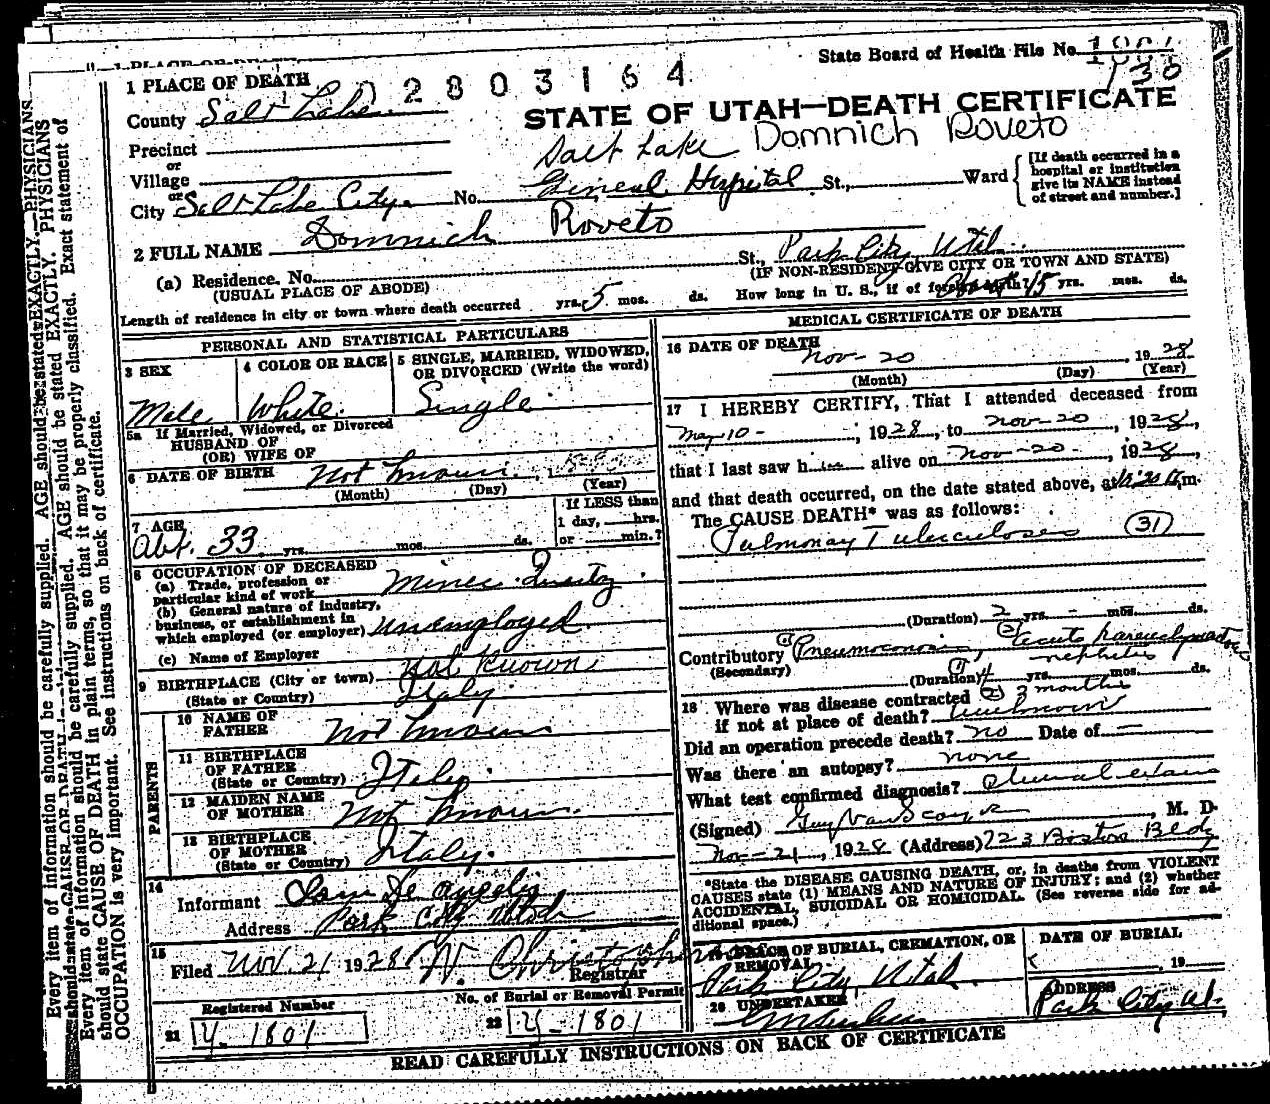 State Board of Health File No. 1801
1 PLACE OF DEATH
2803164
County Salt Lake
STATE OF UTAH—DEATH CERTIFICATE
Precinct
or
Village
or
City Salt Lake City. No. Salt Lake General Hospital St., Ward
Domnich Roveto
[If death occurred in a
hospital or institution
give its NAME instead
of street and number.]
2 FULL NAME Domnich Roveto
(a) Residence. No. St., Park City, Utah.
(USUAL PLACE OF ABODE) (IF NON-RESIDENT GIVE CITY OR TOWN AND STATE)
Length of residence in city or town where death occurred yrs. 5 mos. ds. How long in U. S., if of foreign birth? About 15 yrs. mos. ds.
PERSONAL AND STATISTICAL PARTICULARS
3 SEX
Male
4 COLOR OR RACE
White.
5 SINGLE, MARRIED, WIDOWED,
OR DIVORCED (Write the word)
Single
5a If Married, Widowed, or Divorced
HUSBAND OF
(OR) WIFE OF
6 DATE OF BIRTH Not known, 1
(Month) (Day) (Year)
7 AGE
Abt. 33 yrs. mos. ds.
If LESS than
1 day, hrs.
or min.?
8 OCCUPATION OF DECEASED
(a) Trade, profession or
particular kind of work Miner Quartz
(b) General nature of industry,
business, or establishment in
which employed (or employer) Unemployed.
(c) Name of Employer
9 BIRTHPLACE (City or town) Not Known
(State or Country) Italy.
PARENTS
10 NAME OF
FATHER Not known
11 BIRTHPLACE
OF FATHER
(State or Country) Italy.
12 MAIDEN NAME
OF MOTHER Not known.
13 BIRTHPLACE
OF MOTHER
(State or Country) Italy.
14
Informant Sam De Angelis
Address Park City Utah
15
Filed Nov. 21 1928 W. Christopherson
Registrar
Registered Number
21 Y-1801
No. of Burial or Removal Permit
22 Y-1801
MEDICAL CERTIFICATE OF DEATH
16 DATE OF DEATH
Nov-20, 1928
(Month) (Day) (Year)
17 I HEREBY CERTIFY, That I attended deceased from
May 10 -, 1928, to Nov-20, 1928,
that I last saw him alive on Nov-20-, 1928,
and that death occurred, on the date stated above, at m.
The CAUSE DEATH* was as follows:
Pulmonary Tuberculosis (31)
(Duration) 2 yrs. - mos. ds.
Contributory (1) Pneumoconiosis, (2) Acute parenchymatous
(Secondary) nephritis
(Duration) (1) 4 yrs. mos. ds.
(2) 3 months
18 Where was disease contracted
if not at place of death? Unknown
Did an operation precede death? no Date of —
Was there an autopsy? none
What test confirmed diagnosis? Clinical exam
(Signed) Guy Van Scoyck, M. D.
Nov-21, 1928 (Address) 723 Boston Bldg
*State the DISEASE CAUSING DEATH, or, in deaths from VIOLENT
CAUSES state (1) MEANS AND NATURE OF INJURY; and (2) whether
ACCIDENTAL, SUICIDAL OR HOMICIDAL. (See reverse side for ad-
ditional space.)
19 PLACE OF BURIAL, CREMATION, OR
REMOVAL
Park City, Utah.
DATE OF BURIAL
, 19
20 UNDERTAKER
ADDRESS
Park City Ut.
READ CAREFULLY INSTRUCTIONS ON BACK OF CERTIFICATE
Every item of information should be carefully supplied. AGE should be stated EXACTLY. PHYSICIANS
should state CAUSE OF DEATH in plain terms, so that it may be properly classified. Exact statement of
OCCUPATION is very important. See instructions on back of certificate.